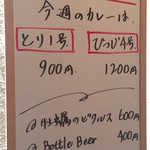 今週のカレーは、
とり1号. ひつじ4号.
900円. 1200円
@ 牡蠣のピクルス 600円
@ Bottle Beer 400円